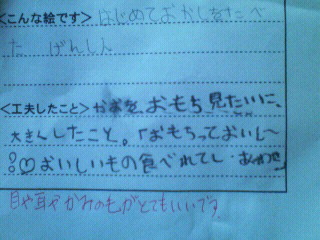 <こんな絵です> はじめておかしをたべ
た げんしん
<工夫したこと> かおを、おもち見たいに、
大きくしたこと。「おもちっておいし〜
♡おいしいもの食べれてし・あわせ」
目や耳やかみのもがとてもいいです